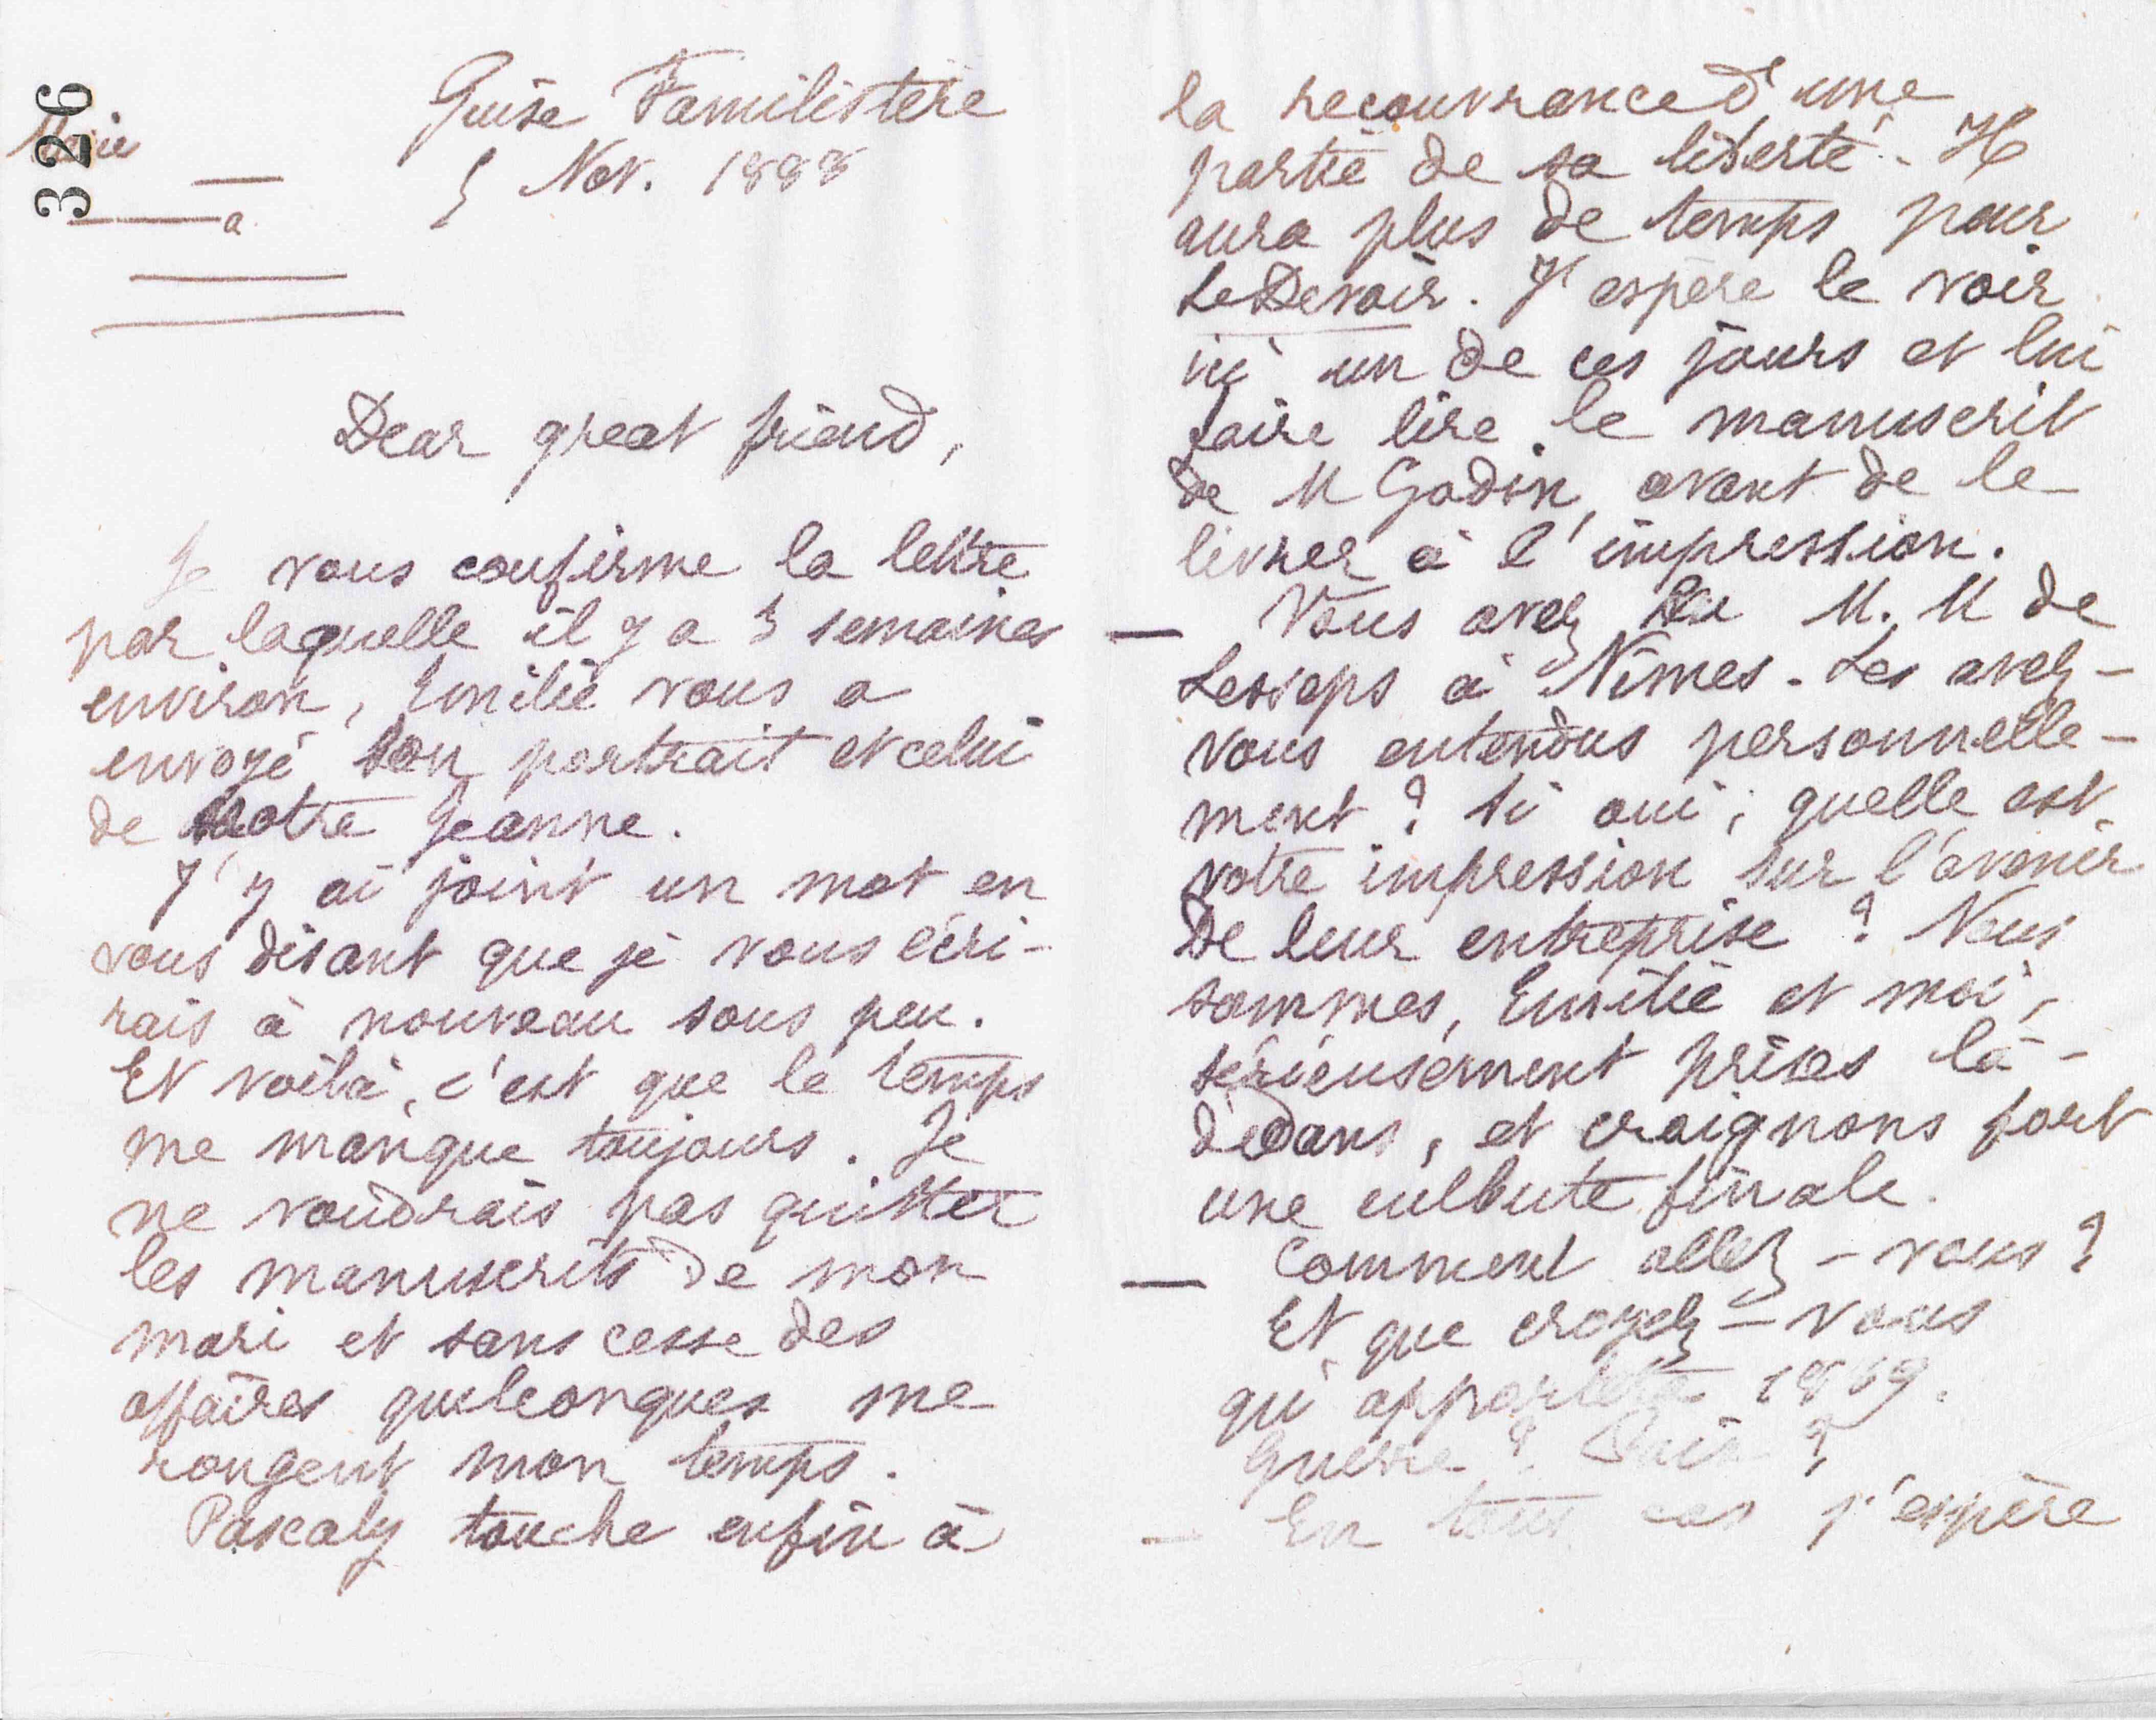 326
Marie
Guise Familistère
5 Nov. 1888
a
Dear great friend,
Je vous confirme la lettre
par laquelle il y a 3 semaines
environ, Emilie vous a
envoyé son portrait et celui
de notre Jeanne.
J'y ai joint un mot en
vous disant que je vous écri-
rais à nouveau sous peu.
Et voilà, c'est que le temps
me manque toujours. Je
ne voudrais pas quitter
les manuscrits de mon
mari et sans cesse des
affaires quelconques me
rongent mon temps.
Pascaly touche enfin à
la recouvrance d'une
partie de sa liberté. Il
aura plus de temps pour
Le Devoir. J'espère le voir
ici un de ces jours et lui
faire lire le manuscrit
de M Godin, avant de le
livrer à l'impression.
— Vous avez eu M. M de
Lesseps à Nîmes. Les avez-
vous entendus personnelle-
ment ? Si oui, quelle est
votre impression sur l'avenir
de leur entreprise ? Nous
sommes, Emilie et moi,
sérieusement prises là-
dedans, et craignons fort
une culbute finale.
— Comment allez-vous ?
Et que croyez-vous
qu'apportera 1889.
Guerre ? Paix ?
— En tous cas j'espère